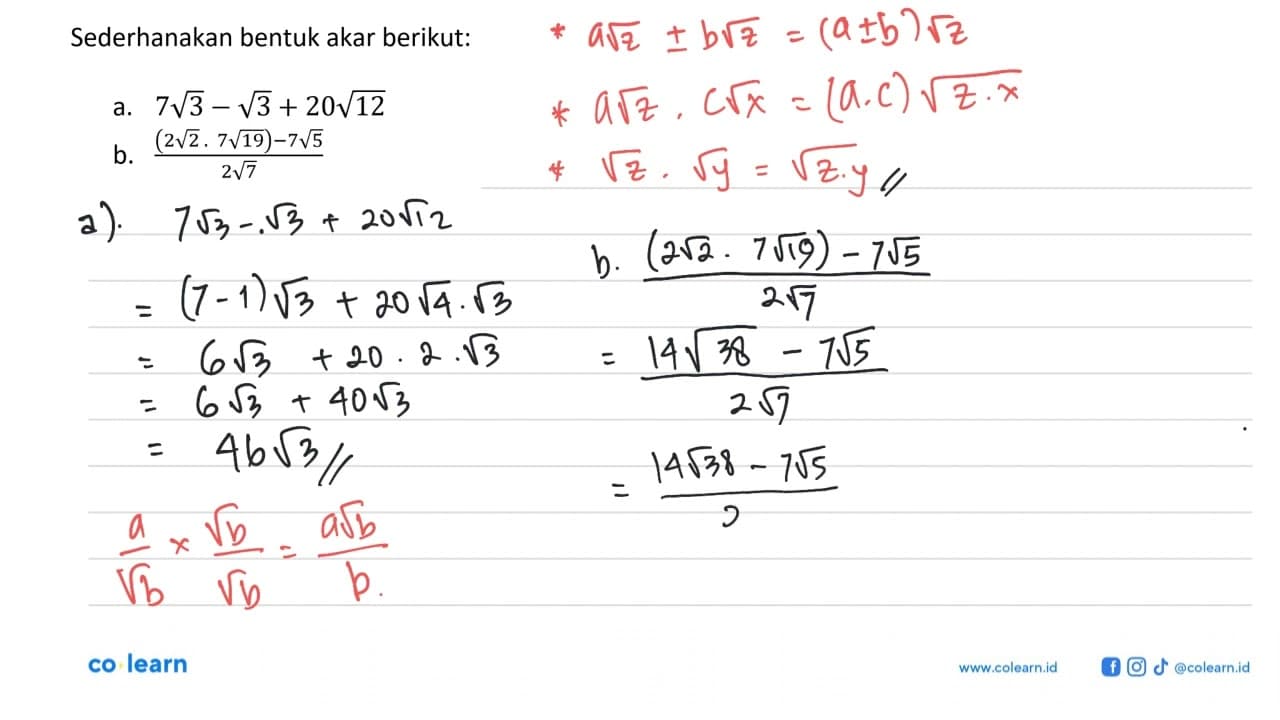 Sederhanakan bentuk akar berikut:
a. 7√3 – √3 + 20√12
b. (2√2 . 7√19)−7√5 / 2√7
* a√z ± b√z = (a±b)√z
* a√z . c√x = (a.c)√z.x
* √z . √y = √z.y //
a). 7√3 - √3 + 20√12
= (7-1)√3 + 20√4.√3
= 6√3 + 20 . 2 .√3
= 6√3 + 40√3
= 46√3 //
a/√b × √b/√b = a√b/b.
b. (2√2 . 7√19) - 7√5 / 2√7
= 14√38 - 7√5 / 2√7
= 14√38 - 7√5 /
co learn
www.colearn.id
@colearn.id